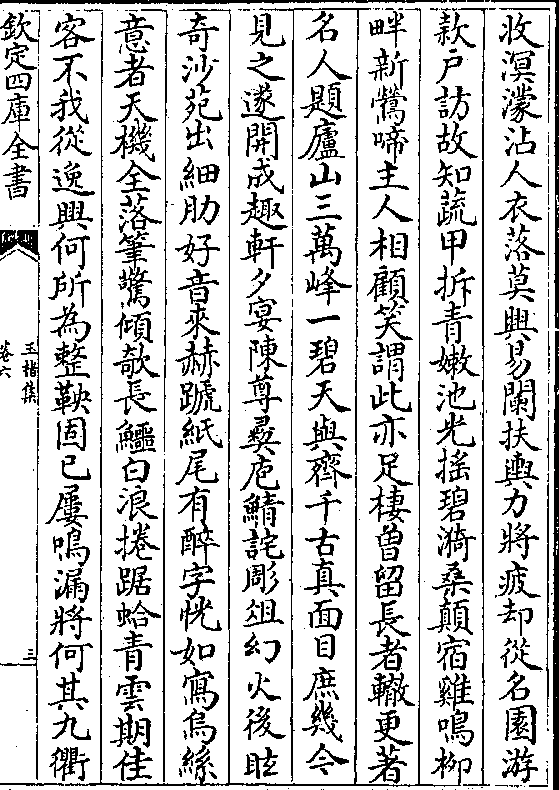 收溟濛沾人衣落莫興易闌扶輿力將疲却從名園游
款户訪故知蔬甲拆青嫩池光摇碧漪桑顛宿雞鳴柳
畔新鶯啼主人相顧笑謂此亦足棲曾留長者轍更著
名人題廬山三萬峰一碧天與齊千古真面目庶幾今
見之遂開成趣軒夕宴陳尊彞庖鯖詫彫俎幻火後眩
奇沙苑出細肋好音來赫蹏紙尾有醉字恍如寫烏絲
意者天機全落筆驚傾欹長鱷白浪捲踞蛤青雲期佳
客不我從逸興何所為整鞅固已屢鳴漏將何其九衢
欽定四庫全書
玉楮集
卷六
三